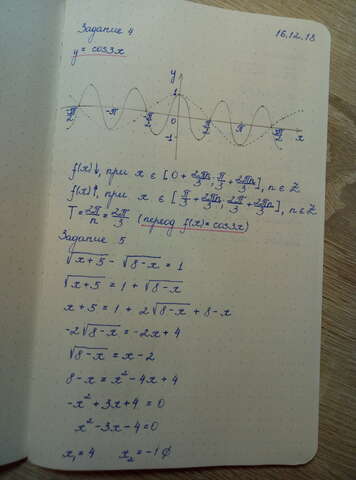 Задание 4
16.12.18
y = cos3x
y
1
-π
0
π
-1
x
f(x)↓, при x ∈ [0 + 2πn/3; π/3 + 2πn/3], n ∈ Z
f(x)↑, при x ∈ [π/3 + 2πn/3; 2π/3 + 2πn/3], n ∈ Z
T = 2π/n = 2π/3 (период f(x) = cos3x)
Задание 5
√x+5 - √8-x = 1
√x+5 = 1 + √8-x
x + 5 = 1 + 2√8-x + 8 - x
-2√8-x = -2x + 4
√8-x = x - 2
8 - x = x² - 4x + 4
-x² + 3x + 4 = 0
x² - 3x - 4 = 0
x₁ = 4 x₂ = -1 ∅